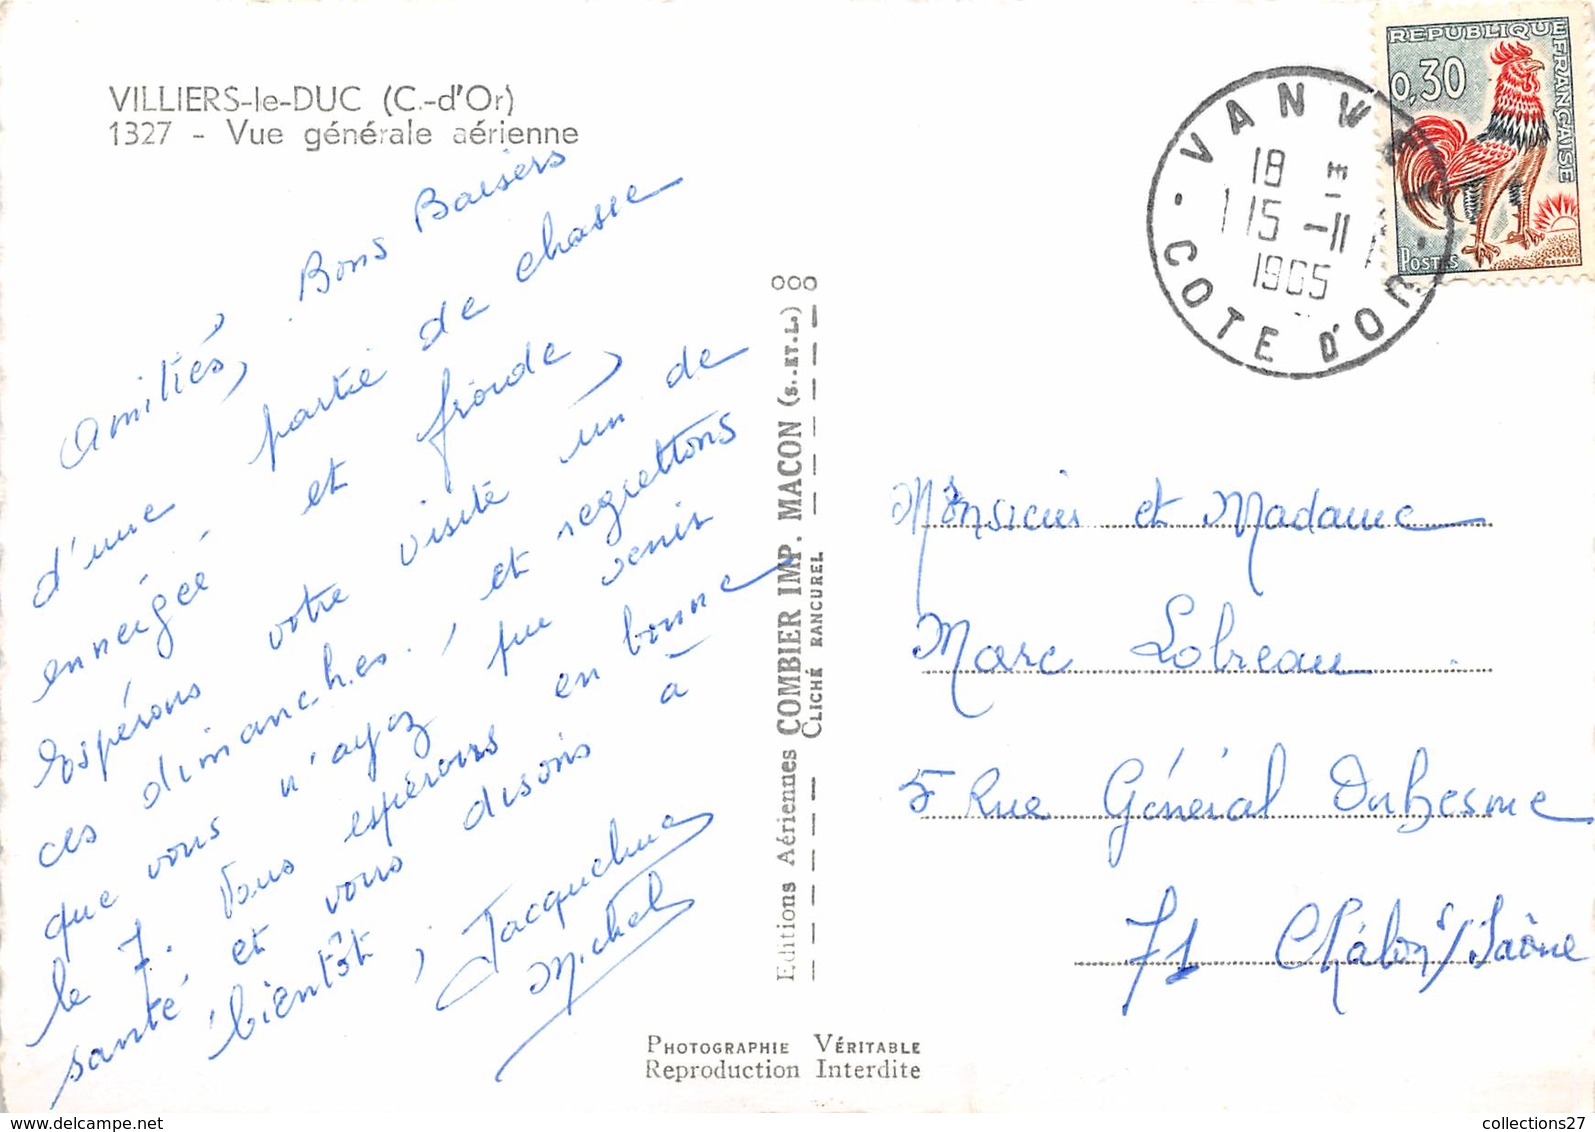 VILLIERS-le-DUC (C.-d'Or)
1327 - Vue générale aérienne
Amitiés, Bons Baisers
d'une partie de chasse
enneigée et froide,
Espérons votre visite un de
ces dimanches. et regrettons
que vous n'ayez pu venir
le 7. Nous espérons en bonne
santé et vous disons à
bientôt,
Jacqueline
Michel
Editions Aériennes COMBIER IMP. MACON (S.-ET-L.)
CLICHÉ RANCUREL
PHOTOGRAPHIE VÉRITABLE
Reproduction Interdite
REPUBLIQUE FRANÇAISE
0,30
POSTES
DECARIS
VANVEY
18 H
15 -11
1965
COTE D'OR
Monsieur et Madame
Marc Lobreau
5 Rue Général Duhesme
71 Châlon s/Saône
collections27